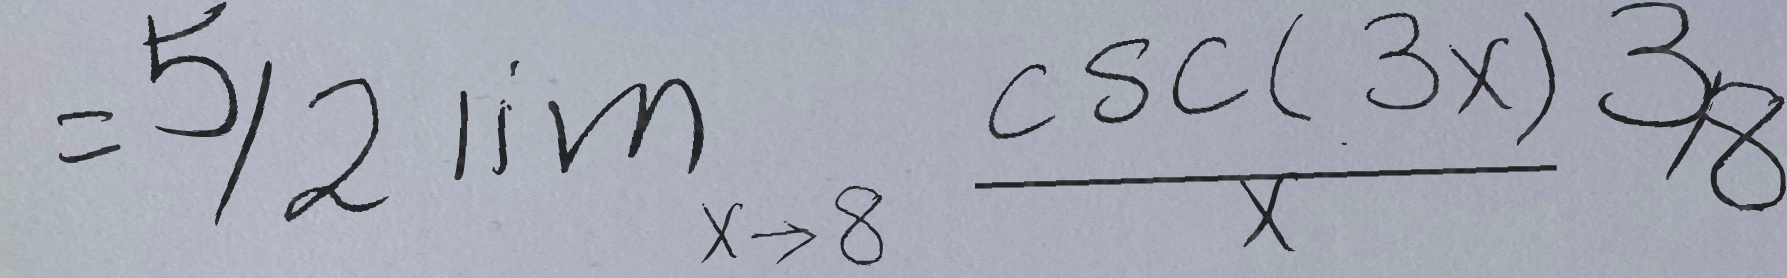 = 5/2 lim x→8 csc(3x)/x 3/8